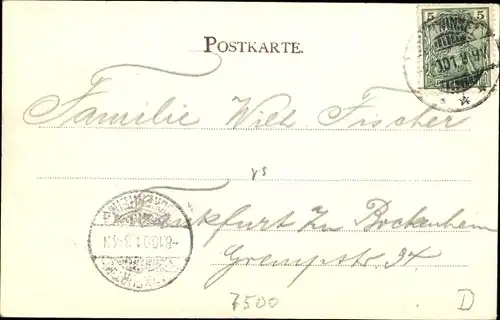 5 5
POSTKARTE.
Familie Wilh. Fischer
Frankfurt
Bockenheim
Grempstr. 34
-8.10.01.3-4N
7500
D